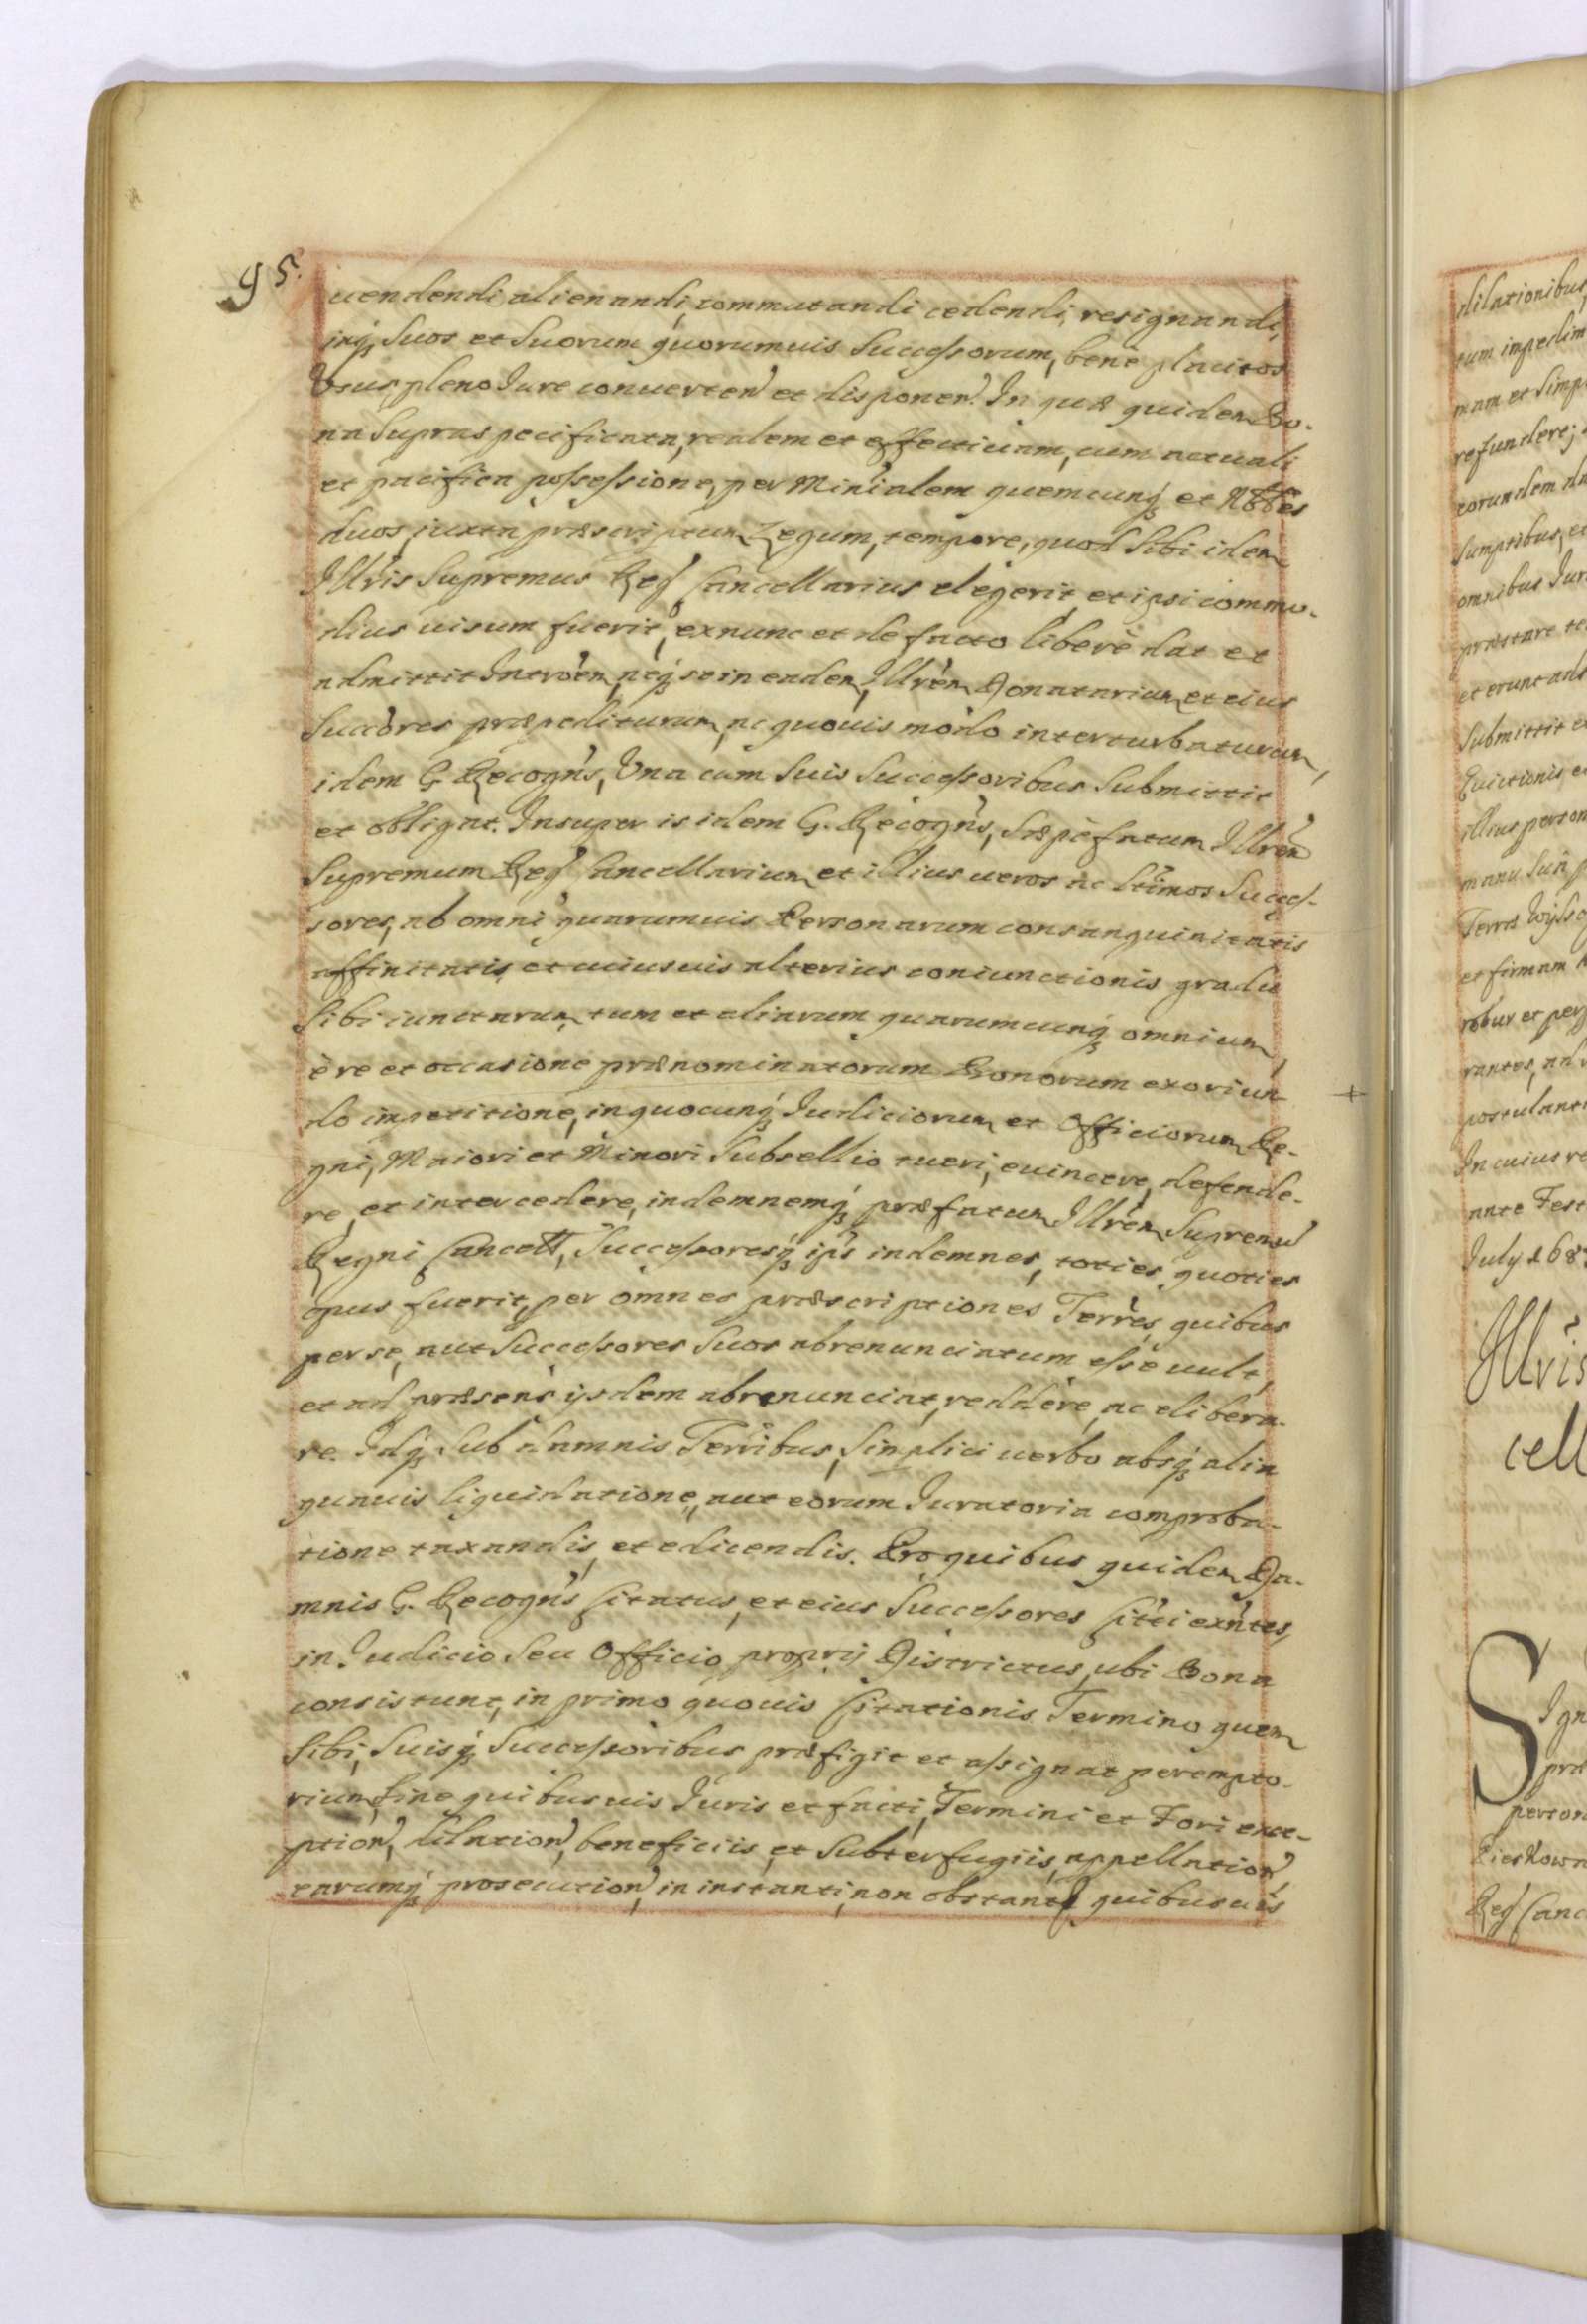 95.
uendendi alienandi, commutandi cedendi, resignandi,
inq₃ Suos et Suorum quorumuis Successorum, bene placitos
Vsus, pleno Iure conuerten͂ et disponen͂. In quæ quidem Bo-
na Supra specificata, realem et effectiuam, cum actuali
et pacifica possessione, per Minl̃alem quemcunq₃ et Nobles
duos, iuxta præscriptum Legum, tempore, quod Sibi idem
Illr̃is Supremus Reg͂ Cancellarius elegerit, et ipsi commo-
dius uisum fuerit, exnunc et de facto liberè dat et
admittit Intro͂em, neq₃ se in eadem, Illr̃em Donatarium, et eius
Succ͂ores præpediturum, ac quouis modo interturbaturum,
idem G. Recogñs, Vna cum Suis Successoribus Submittit
et obligat. Insuper is idem G. Recogñs, Sæpèfatum Illr̃em
Supremum Reg͂ Cancellarium, et illius ueros ac Ltimos Succes-
sores, ab omni quarumuis Personarum consanguinitatis
affinitatis, et cuiusuis alterius coniunctionis gradu
Sibi iunctarum, tum et aliarum quarumcunq₃ omnium,
è re et occasione prænominatorum Bonorum exoriun-
do impetitione, in quocunq₃ Iudiciorum et Officiorum Re-
gni, Maiori et Minori Subsellio tueri, euincere, defende-
re, et intercedere, indemnemq₃ præfatum Illr̃em Supremu͂
Regni Cancell, Successoresq₃ ip̃s indemnes, toties quoties
opus fuerit, per omnes præscriptiones Terr̃es, quibus
per se, aut Successores Suos abrenunciatum esse uult,
et ad præsens ijsdem abrenunciat, reddere, ac elibera-
re. Idq₃ Sub damnis Terr̃ibus, Simplici uerbo absq₃ alia
quauis liquidatione, aut eorum Iuratoria comproba-
tione taxandis, et edicendis. Pro quibus quidem Da-
mnis G. Recogñs Citatus, et eius Successores Citti exñtes,
in Iudicio Seu Officio proprij Districtus, ubi Bona
consistunt, in primo quouis Citationis Termino quem
Sibi, Suisq₃ Successoribus præfigit et assignat perempto-
rium, Sine quibusuis Iuris et facti, Termini et Fori exce-
ption͂, dilation͂, beneficiis, et Subterfugiis, appellation͂,
earumq₃ prosecution͂, in instanti, non obstan͂ quibusuis
dilationibus,
eum impedim
mam et Simp
refundere;
eorundem
Sumptibus, et
omnibus Iur
præstare te
et erunt
Submittit
Euictionis
illius person
manu Suâ p
Terra Wysso
et firmam
robur et per
rantes, ad
postulant
In cuius re
ante Fest
July 168
Illr̃is
cell
Sign
præ
person
Pieskowa
Reg͂ Canc